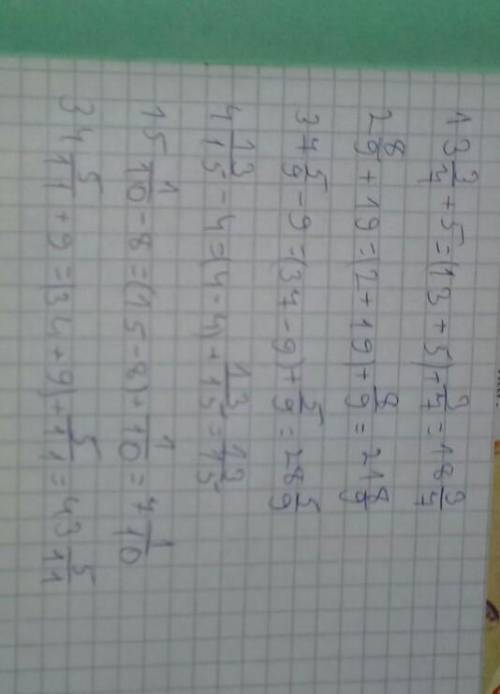 13 3/7 + 5 = (13 + 5) + 3/7 = 18 3/7
2 8/9 + 19 = (2 + 19) + 8/9 = 21 8/9
37 5/9 - 9 = (37 - 9) + 5/9 = 28 5/9
4 13/15 - 4 = (4 - 4) + 13/15 = 13/15
15 1/10 - 8 = (15 - 8) + 1/10 = 7 1/10
34 5/11 + 9 = (34 + 9) + 5/11 = 43 5/11